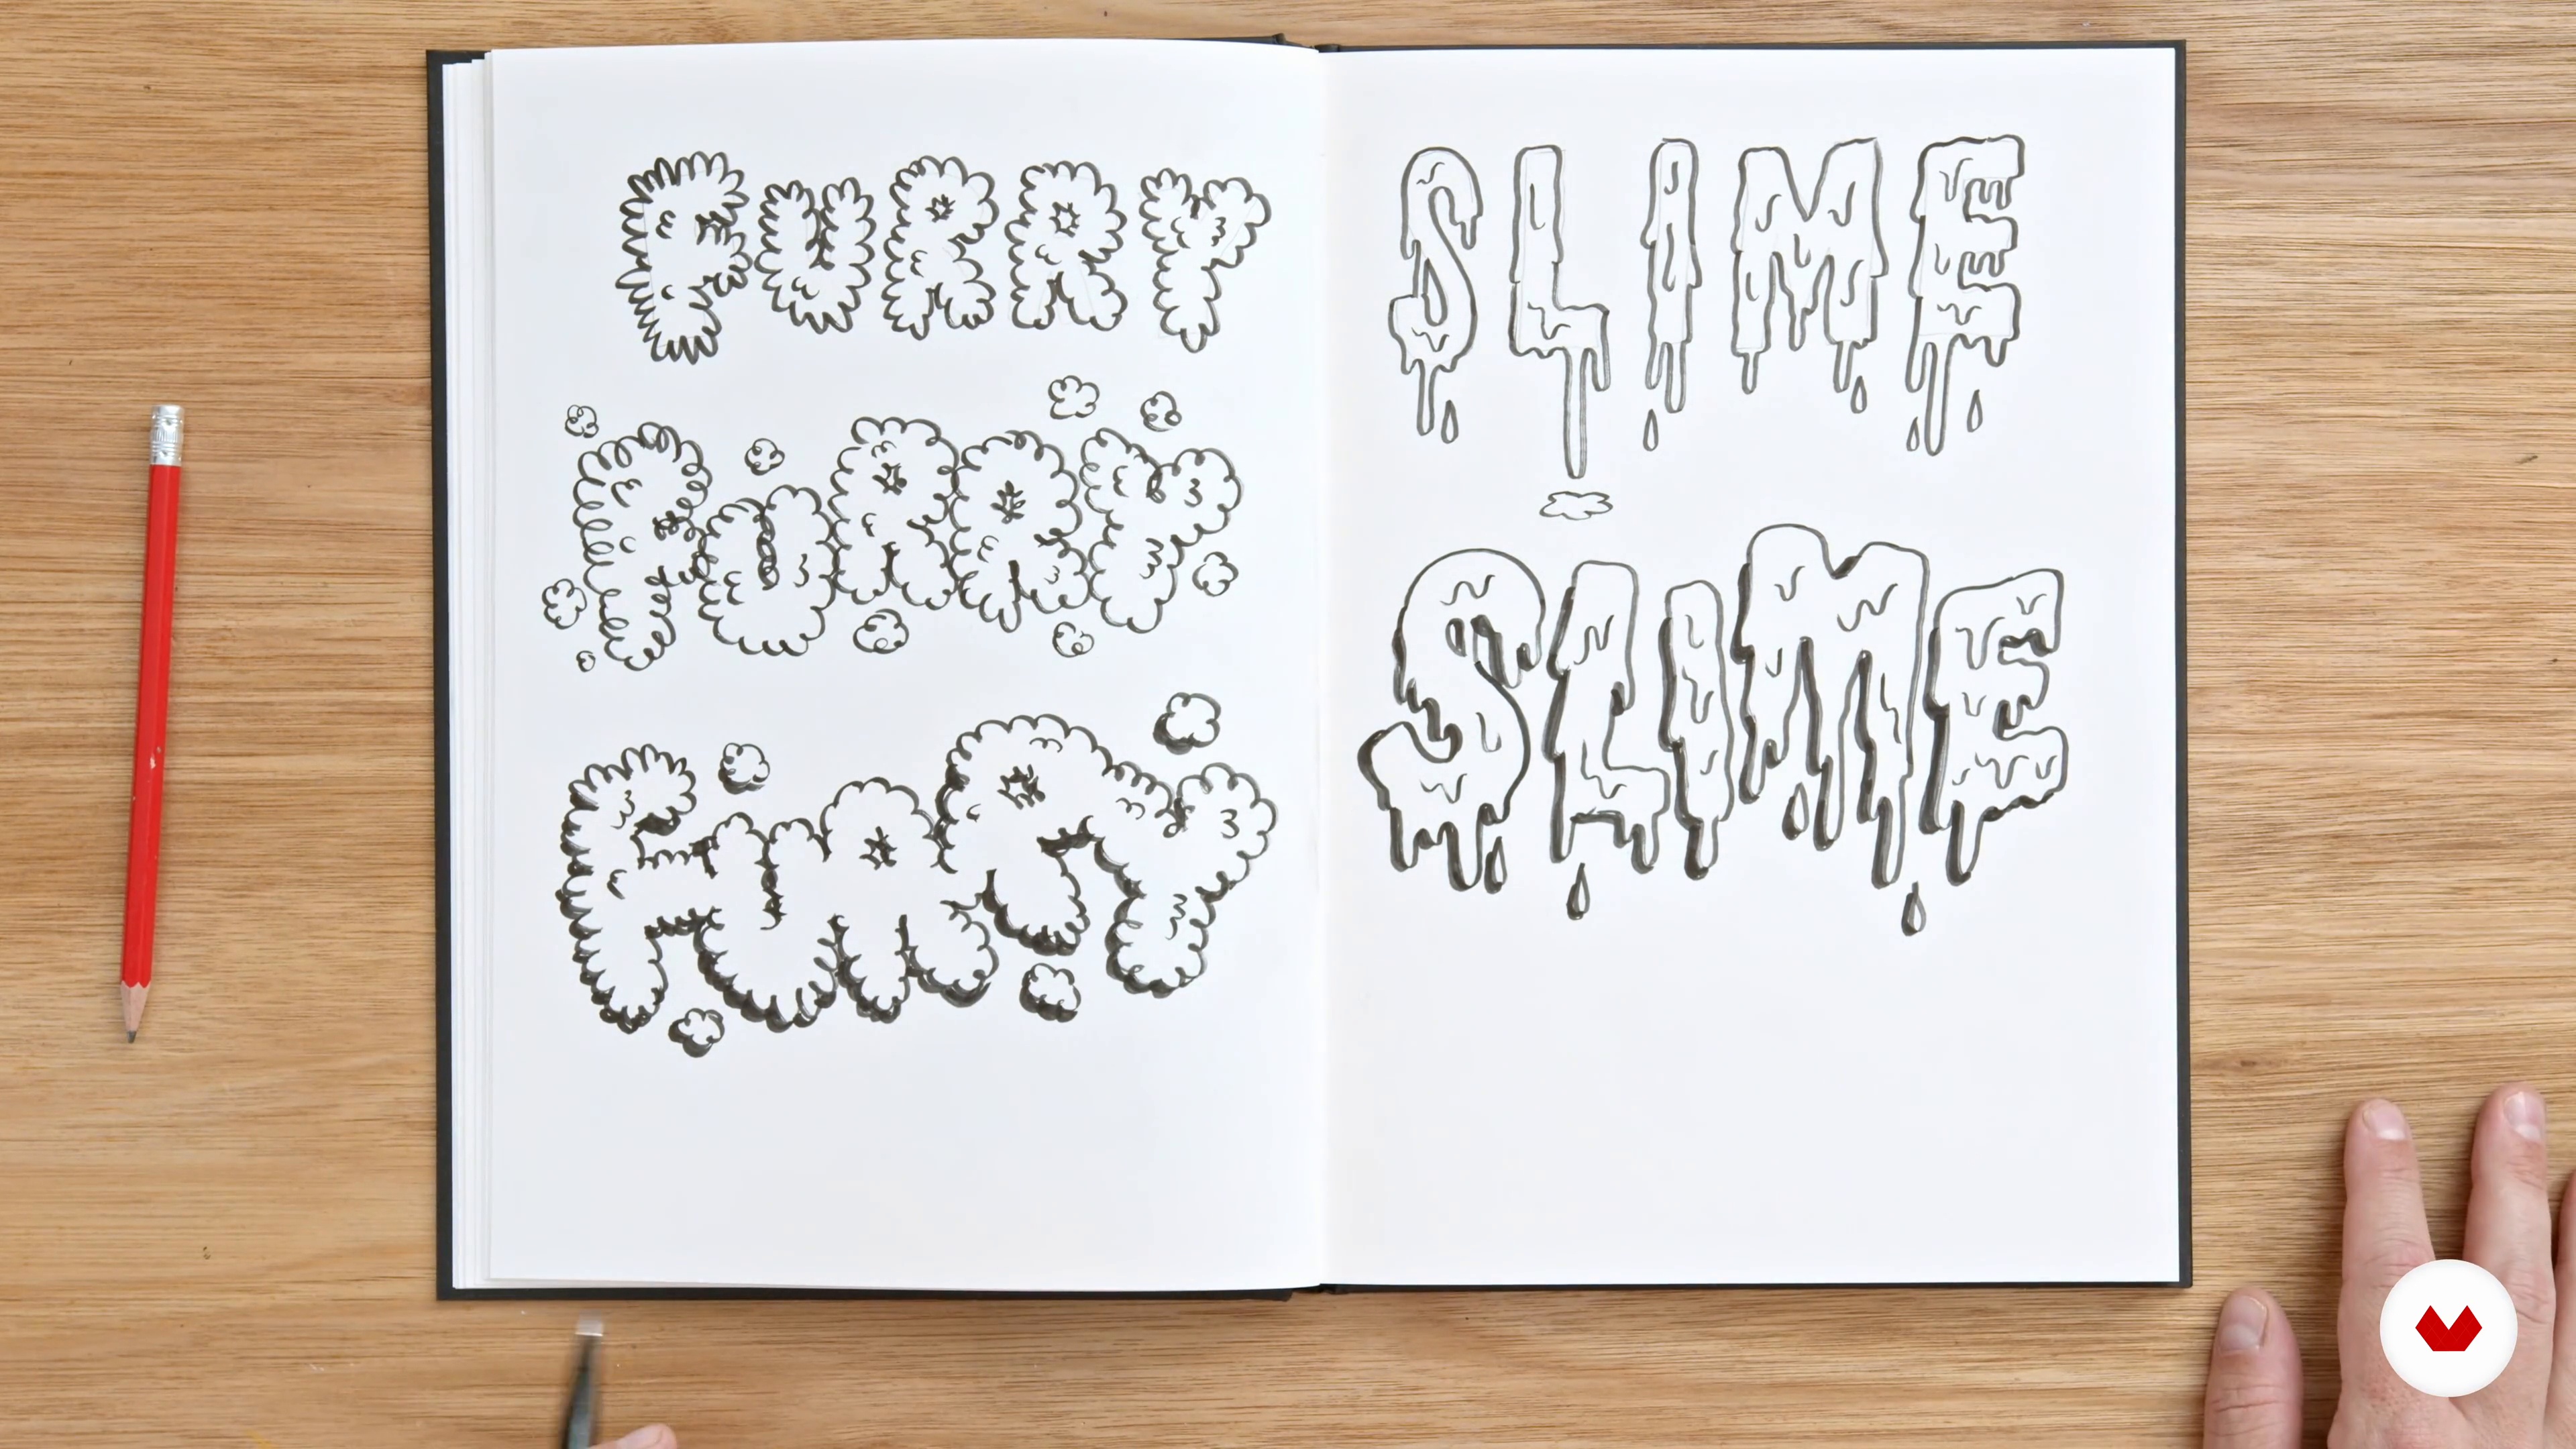 FURRY
FURRY
FURRY
SLIME
SLIME